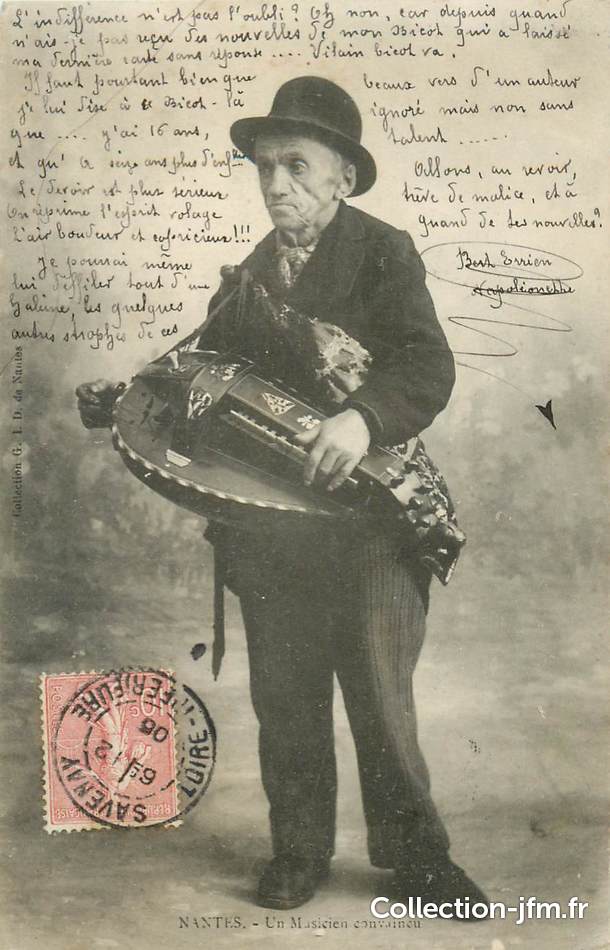 L'indifférence n'est pas l'oubli? Oh non, car depuis quand
n'ais-je pas reçu des nouvelles de mon Bicot qui a laissé
ma dernière carte sans réponse .... Vilain bicot va.
Il faut pourtant bien que
je lui dise à ce Bicot-là
que .... j'ai 16 ans,
et qu'à seize ans plus d'
Le devoir est plus sérieux
On réprime l'esprit volage
L'air boudeur et capricieux!!!
Je pourrai même
lui défiler tout d'une
haleine, les quelques
autres strophes de ces
beaux vers d'un auteur
ignoré mais non sans
talent ......
Allons, au revoir,
trève de malice, et à
quand de tes nouvelles?
Bert Errien
Napoléonette
Collection G. I. D. de Nantes
SAVENAY
LOIRE-INFÉRIEURE
NANTES. - Un Musicien convaincu
Collection-jfm.fr